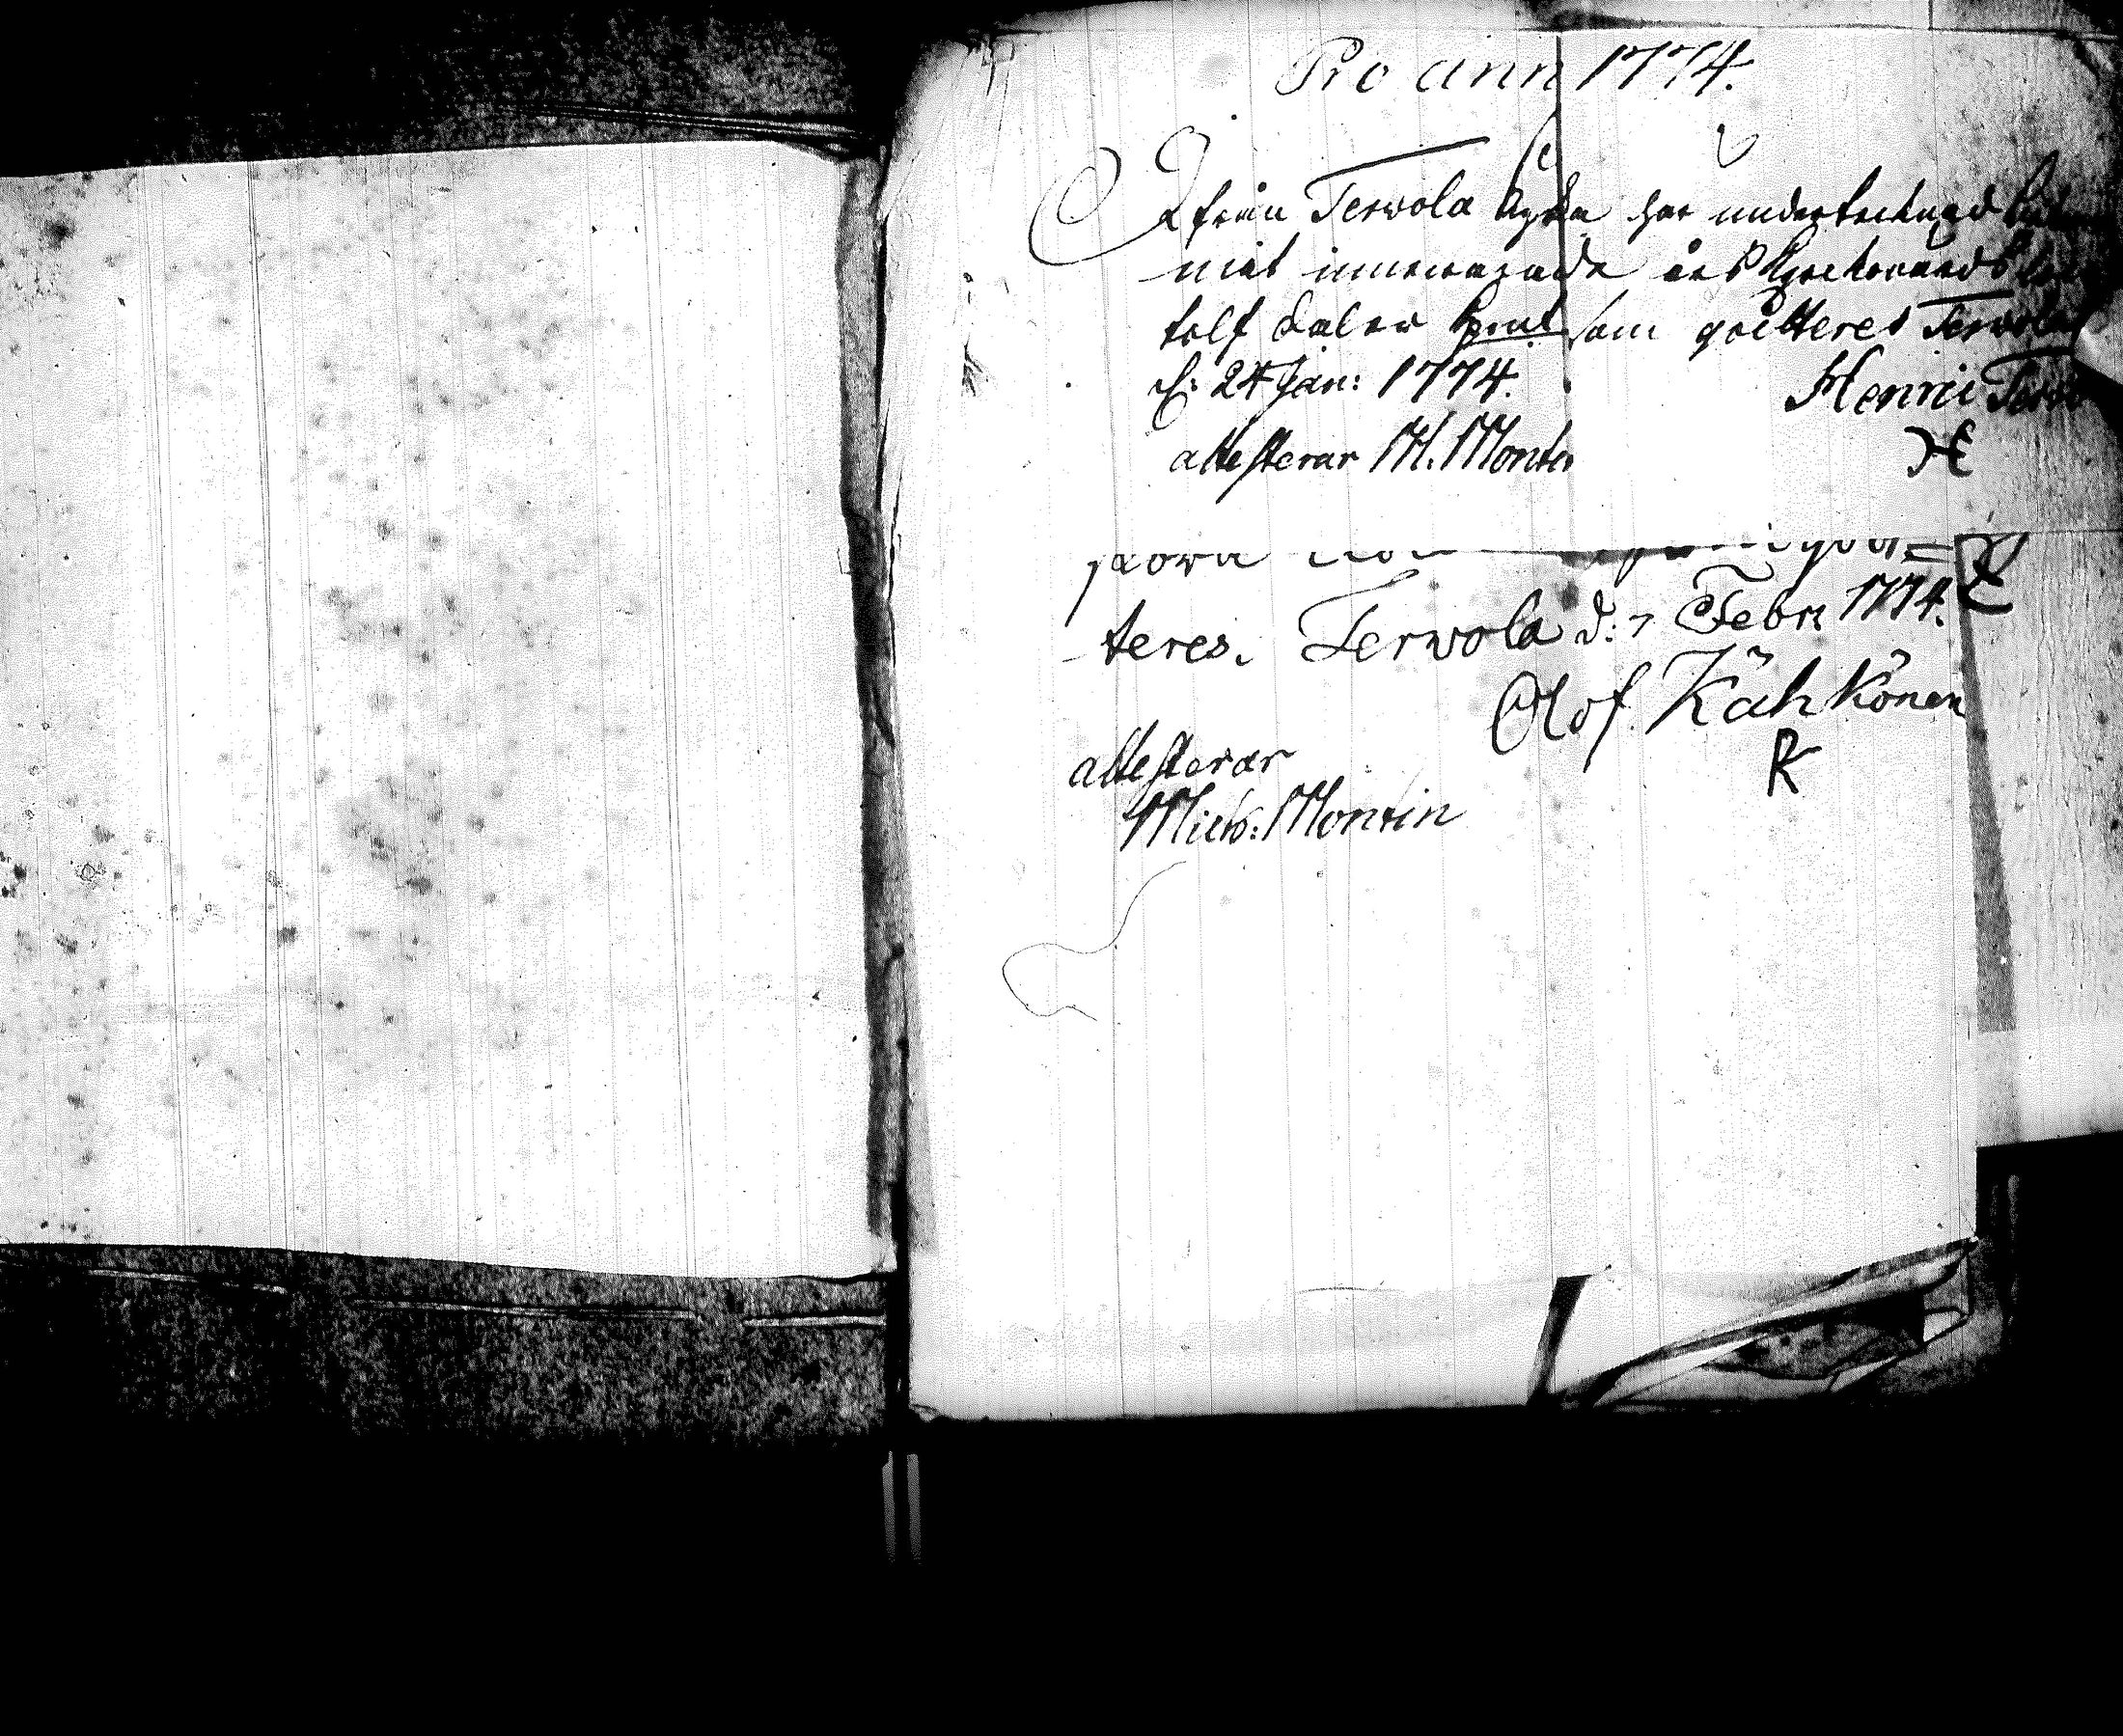 Pro ann 1774.
Ifrån Terwola Kyrka har undertecknad
mit innewarande års Kyrkowards
tolf daler kpmt som qvitteres Terwola
d: 24 Jan: 1774. Henric
attesterar M. Montin
H
teres. Terwola d: 7 Febr 1774.
Olof Kähkönen
K
attesterar
Mich: Montin